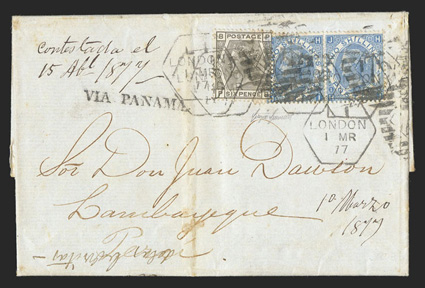 contestada el
15 Abl 1877
VIA PANAMA
B POSTAGE
SIX PENCE
TWO SHILLINGS
LONDON
1 MR
77
LONDON
1 MR
77
Sor Don Juan Dawson
Lambayeque
Peru
1o Marzo
1877